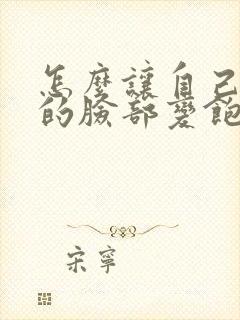 怎麼讓自己
的臉部變飽
宋寧